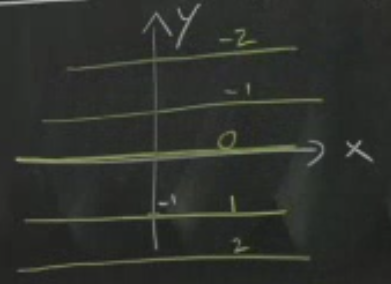 y
-2
-1
0
x
-1
1
2